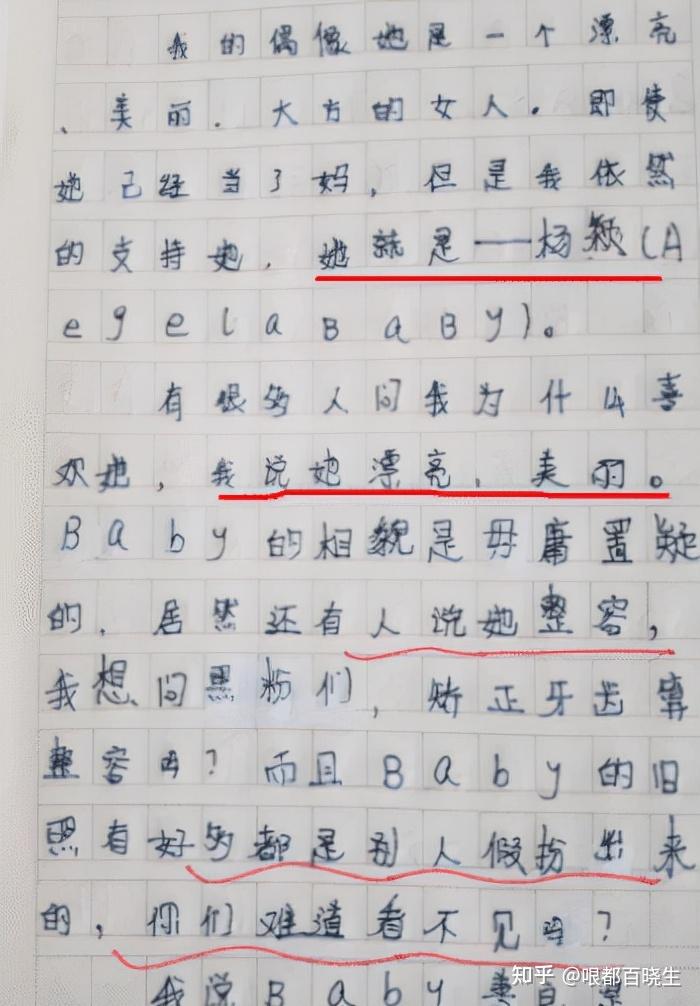 我的偶像她是一个漂亮
、美丽.大方的女人.即使
她己经当了妈,但是我依然
的支持她,她就是——杨颖(A
egelaBaBy)。
有很多人问我为什么喜
欢她,我说她漂亮、美丽。
Baby的相貌是毋庸置疑
的,居然还有人说她整容,
我想问黑粉们,矫正牙齿算
整容吗?而且Baby的旧
照有好多都是别人假扮出来
的,你们难道看不见吗?
我说Baby美
知乎 @哏都百晓生